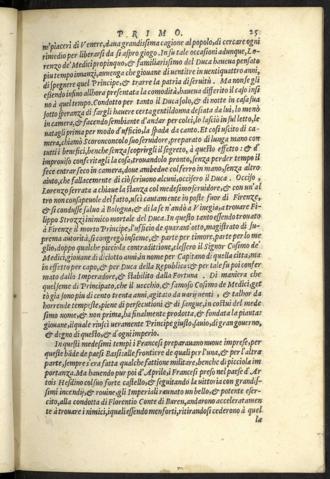 PRIMO. 25
ne' piaceri di Venere, dana grandissima cagione al popolo, di cercare ogni
rimedio per liberarsi da sì aspro giogo. In su tale occasioni adunque, Lo-
renzo de' Medici propinquo, & familiarissimo del Duca haueua pensato
piu tempo innanzi, auuenga che giouane di uentitre in uentiquattro anni,
di spegnere quel Principe, & trarre la patria di seruitù. Ma non se gli
essendo insino allhora presentata la comodità, haueua differito il caso insi
no à quel tempo. Condotto per tanto il Duca solo, & di notte in casa sua
sotto speranza di fargli hauere certa gentildonna desiata da lui, lo menò
in camera, & facendo sembiante d'andar per colei, lo lasciò in sul letto, le
uatagli prima per modo d'ufficio, la spada da canto. Et così uscito di ca-
mera, chiamò Scoronconcolo suo seruidore, preparato di lunga mano con
tutti i benefici, benche senza scoprirgli il segreto, à questo effetto: & d'
improuiso conferitagli la cosa, trouandolo pronto, senza perder tempo il
fece entrar seco in camera, doue ambedue co' ferro in mano, senza altro
aiuto, che falsacemente di ciò scriuono alcuni, occiseno il Duca. Occiso,
Lorenzo serrata a chiaue la stanza col medesimo seruidore, & con un'al
tro non consapeuole del fatto, uscì cautamente in poste fuor di Firenze,
& si condusse saluo à Bologna, & di là n'andò à Vinegia, à trouare Fi-
lippo Strozzi inimico mortale del Duca. In questo tanto essendo trouato
à Firenze il morto Principe, l'ufficio de quarant'otto, magistrato di su-
prema autorità, si congregò insieme, & parte per timore, parte per lo me
glio, doppo qualche piccola contradittione, elessero il Signor Cosimo de'
Medici, giouane di diciotto anni, in nome per Capitano di quella città, ma
in effetto per capo, & per Duca della Republica, & per tale fu poi confer-
mato dall'Imperadore, & stabilito dalla Fortuna. Di maniera che
quel seme di Principato, che il uecchio, & famoso Cosimo de Medici get-
tò già sono piu di cento trenta anni, agitato da uarij uenti, & talhor da
horrende tempeste, piene di persecutioni & di sangue, in costui del mede-
simo nome, & non prima, ha finalmente prodotta, & fondata la pianta:
giouane, il quale riuscì ueramente Principe giusto, sauio, di gran gouerno,
& degno di questo, & d'ogni imperio.
In questi medesimi tempi i Francesi preparauano nuoue imprese, per
queste bande de paesi Bassi, alle frontiere de quali per l'una, & per l'altra
parte, sempre s'era fatta qualche fattione militare, benche di piccola im
portanza. Ma hauendo pur poi d'Aprile, i Francesi preso nel paese d'Ar
tois Hesdino col suo forte castello, & seguitando la uittoria con grandis-
simi incendij, & rouine, gli Imperiali raunato un bello, & potente eser-
cito, alla condotta di Florentio Conte di Buren, andarono acceleratamen
te à trouare i nimici, i quali essendo men forti, ritirandosi cederono à quel
la